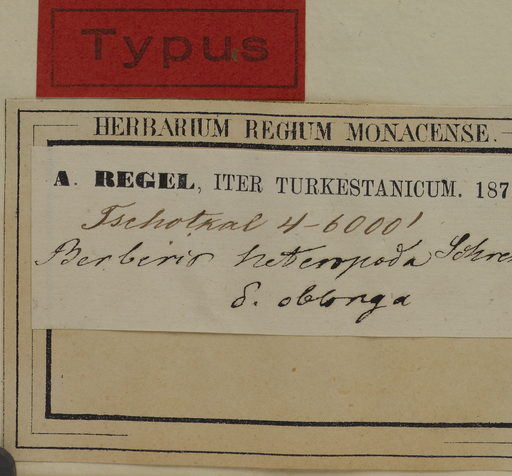 Typus
HERBARIUM REGIUM MONACENSE.
A. REGEL, ITER TURKESTANICUM. 187
Tschotkal 4-6000'
Berberis heteropoda Schren
δ. oblonga